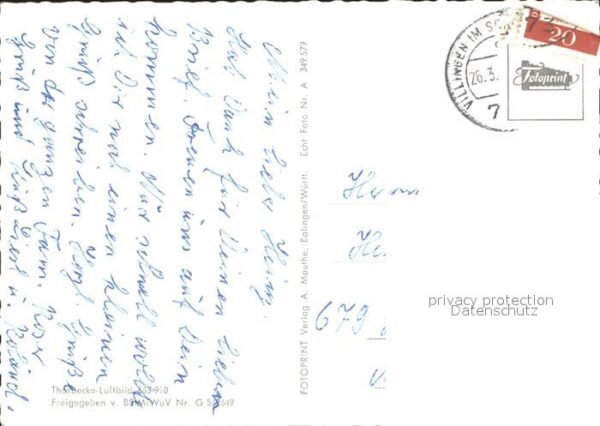 Mein lieber Heinz.
Hab Dank für Deinen lieben
Brief. Freuen uns auf Dein
kommen. Nur schnell wollte
ich Dir mal einen kleinen
Gruß schreiben. Herzl. Grüße
von der ganzen Fam.
Gruß und Kuß u. Roland.
Thorbecke-Luftbild 653-910
Freigegeben v. BStMiWuV Nr. G 5/
FOTOPRINT Verlag A. Mauthe, Ealingen/Württ. Echt Foto Nr. A 349 579
VILLINGEN IM
26.3.
7
20
Fotoprint
Herrn
679
privacy protection
Datenschutz